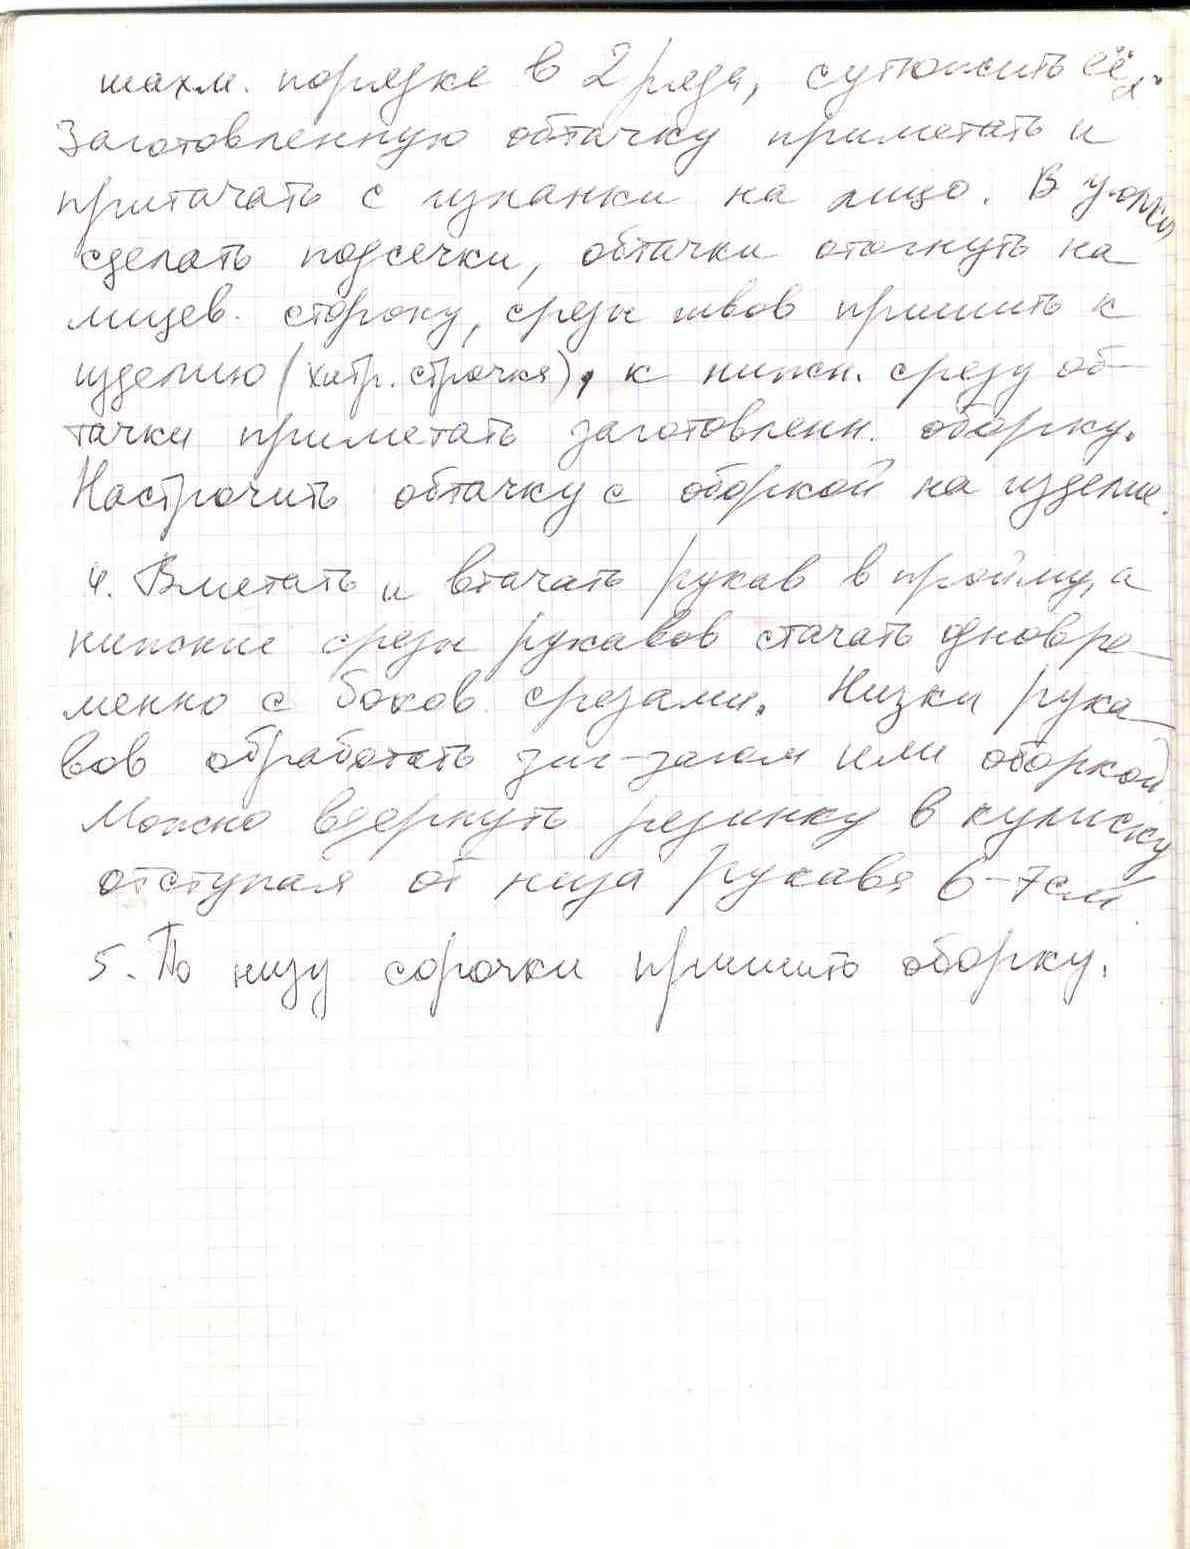 шахм. порядке в 2 ряда, сутюжить её.
Заготовленную обтачку приметать и
притачать с изнанки на лицо. В уголках
сделать подсечки, обтачки отогнуть на
лицев. сторону, срезы швов пришить к
изделию (хитр. строчка), к нижн. срезу об-
тачки приметать заготовленн. оборку.
Настрочить обтачку с оборкой на изделие.
4. Вметать и втачать рукав в пройму, а
нижние срезы рукавов стачать одновре-
менно с боков. срезами. Низки рука-
вов обработать зиг-загом или оборкой
Можно вдернуть резинку в кулиску
отступая от низа рукава 6-7см.
5. По низу сорочки пришить оборку.